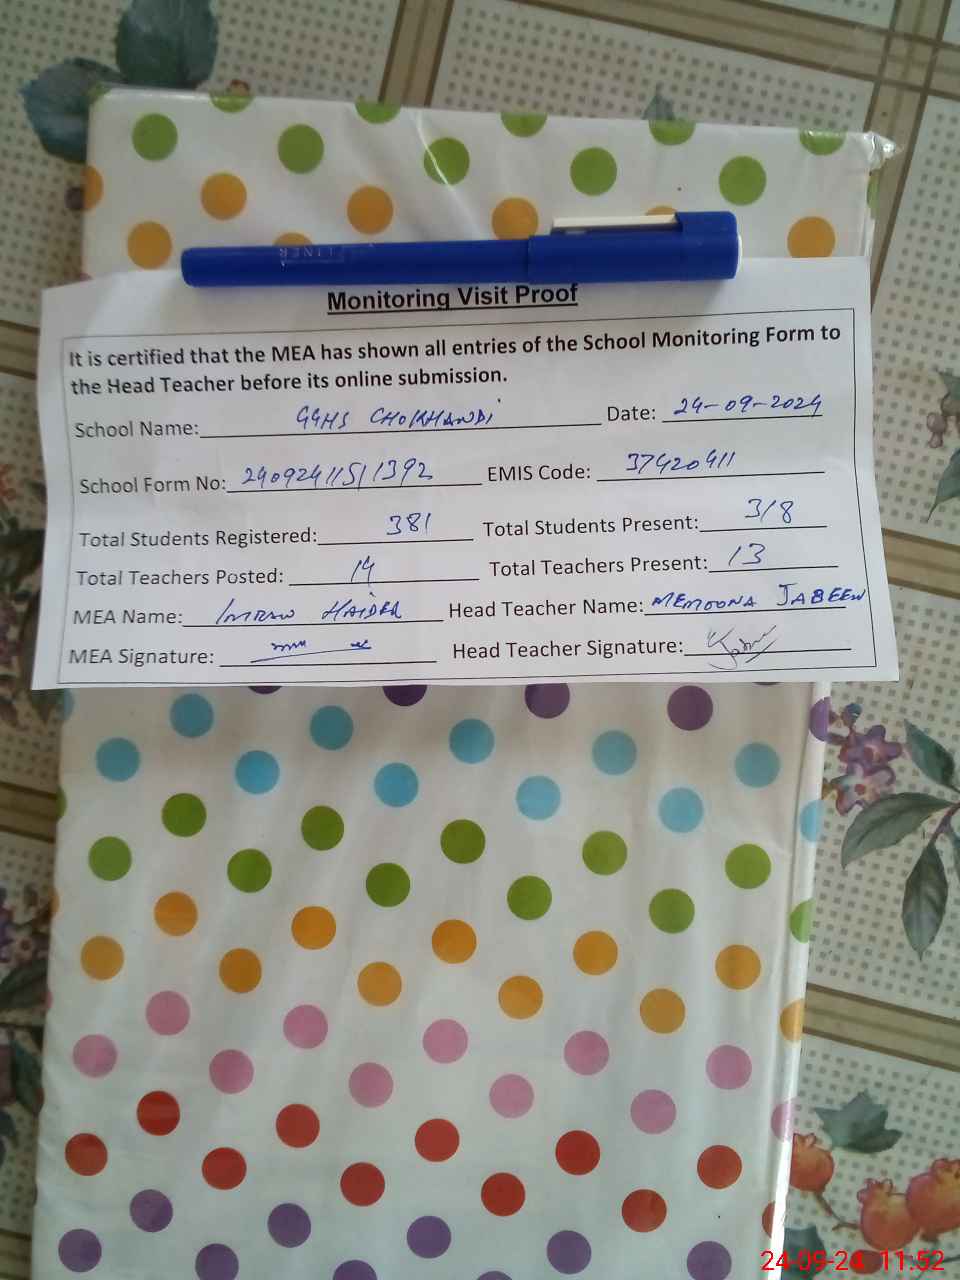 LINER
Monitoring Visit Proof
It is certified that the MEA has shown all entries of the School Monitoring Form to
the Head Teacher before its online submission.
School Name: GGHS CHOKHANDI Date: 24-09-2024
School Form No: 24092411511392 EMIS Code: 37420411
Total Students Registered: 381 Total Students Present: 318
Total Teachers Posted: 14 Total Teachers Present: 13
MEA Name: IMRAN HAIDER Head Teacher Name: MEMOONA JABEEN
MEA Signature: Head Teacher Signature:
24-09-24 11:52